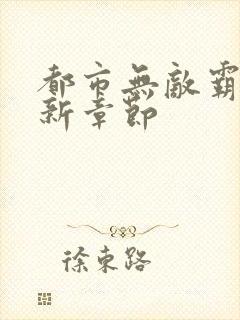 都市無敵霸
新章節
徐東路